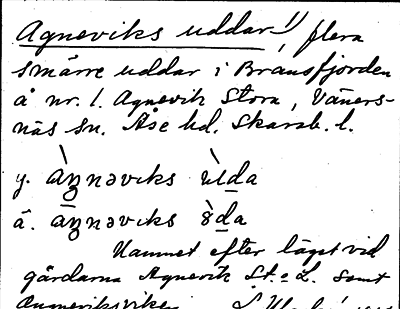 Agneviks uddar!!, flera
smärre uddar i Bransfjorden
å nr. 1. Agnevik Stora, Väners-
näs sn. Åse hd. Skarab. l.
y. àŋnəviks ùda
ä. āŋnəviks òda
Namnet efter läget vid
gårdarna Agnevik St. o L. samt